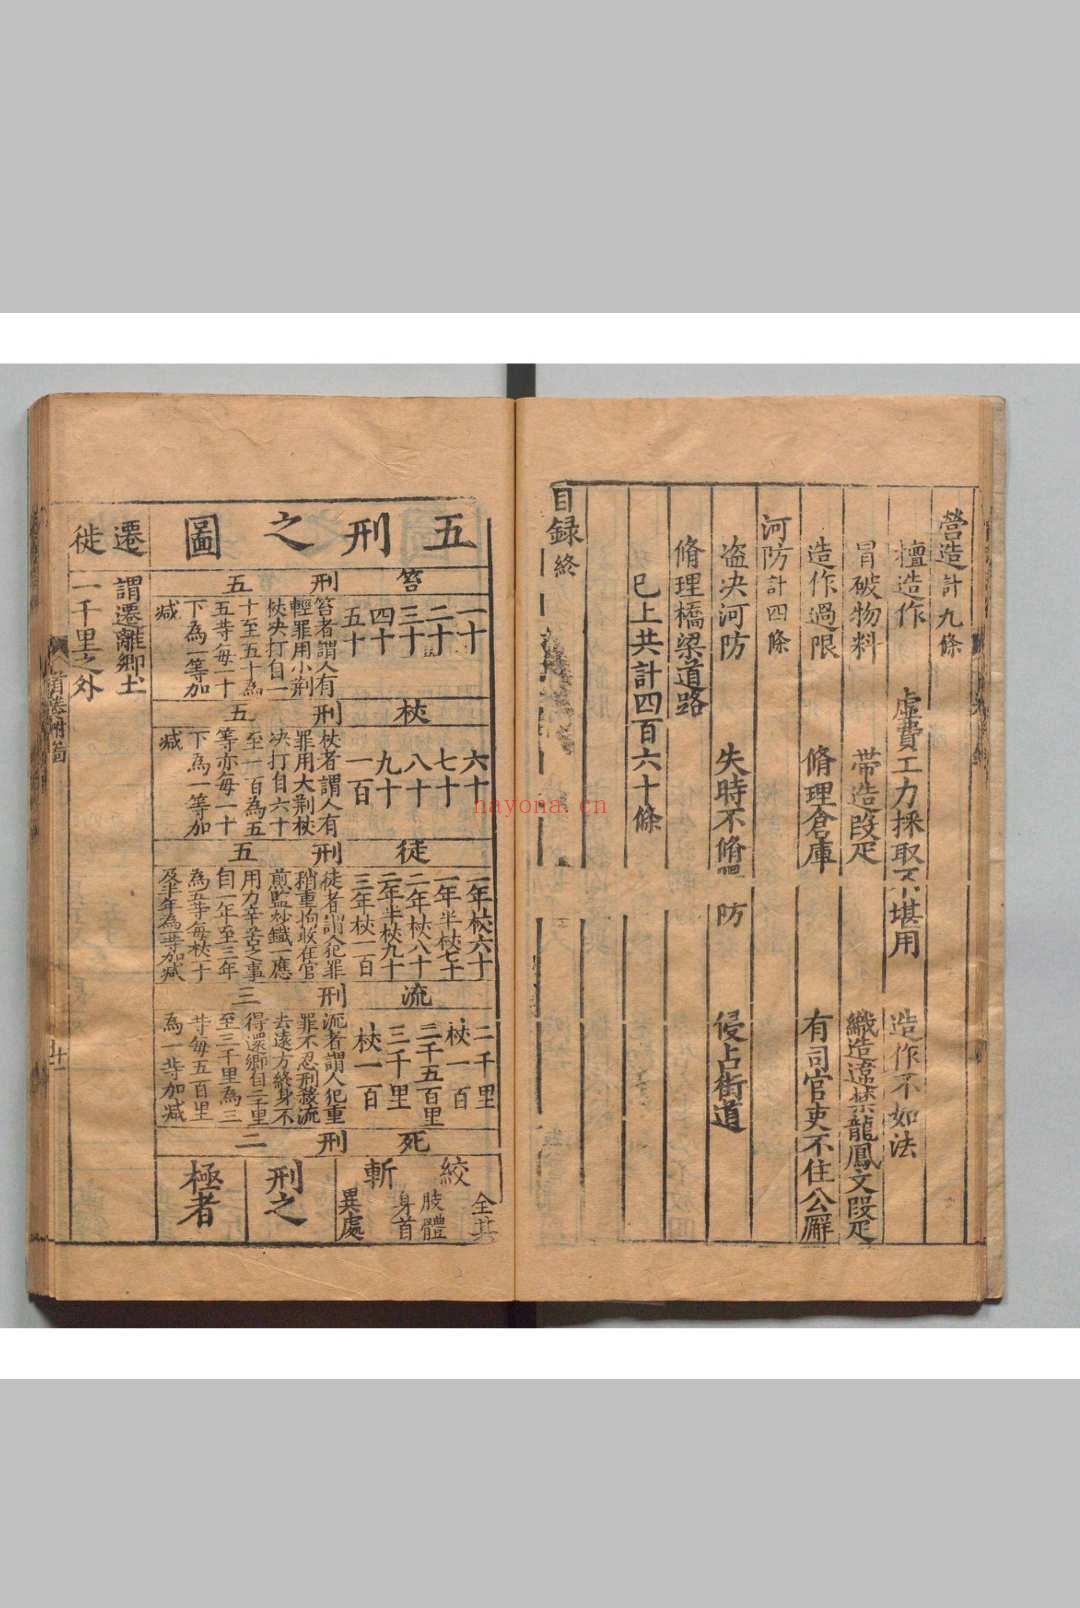 營造計九條
擅造作 虛費工力採取不堪用 造作不如法
冒破物料 帶造段疋 織造違禁龍鳳文段疋
造作過限 脩理倉庫 有司官吏不住公廨
河防計四條
盗决河防 失時不脩 防 侵占街道
脩理橋梁道路
已上共計四百六十條
目録終
五刑之圖
笞刑五
一十
二十
三十
四十
五十
笞者謂人有
輕罪用小荆
杖决打自一
十至五十為
五等每一十
下為一等加
減
杖刑五
六十
七十
八十
九十
一百
杖者謂人有
罪用大荆杖
决打自六十
至一百為五
等亦每一十
下為一等加
減
徒刑五
一年杖六十
一年半杖七十
二年杖八十
二年半杖九十
三年杖一百
徒者謂人犯罪
稍重拘收在官
煎監炒鐵一應
用力辛苦之事
自一年至三年
為五等每杖一十
及半年為一等加減
流刑三
二千里
杖一百
二千五百里
三千里
杖一百
流者謂人犯重
罪不忍刑殺流
去遠方終身不
得還鄉自二千里
至三千里為三
等每五百里
為一等加減
死刑二
絞 全其肢體
斬 身首異處
刑之
極者
遷徙
謂遷離鄉土
一千里之外
首卷附畨
十一
nayona.cn